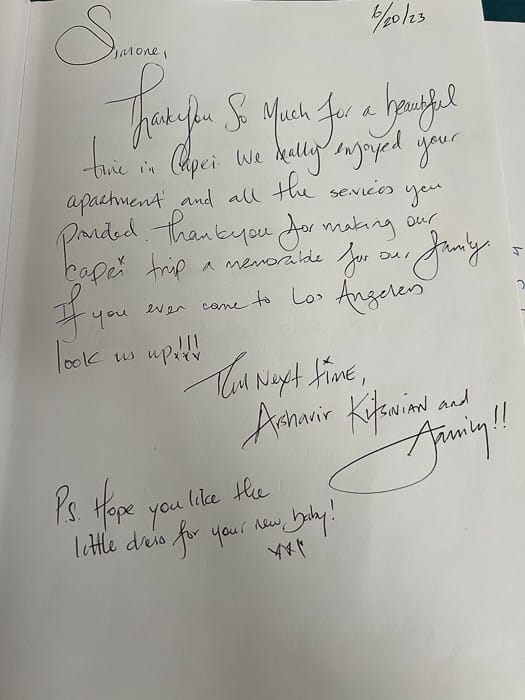 6/20/23
Simone,
Thankyou So Much for a beautiful
time in Capri. We really enjoyed your
apartment and all the services you
provided. Thankyou for making our
Capri trip a memorable for our family.
If you ever come to Los Angeles
look us up!!!
Till Next time,
Arshavir Kitsinian and
family!!
P.S. Hope you like the
little dress for your new baby!